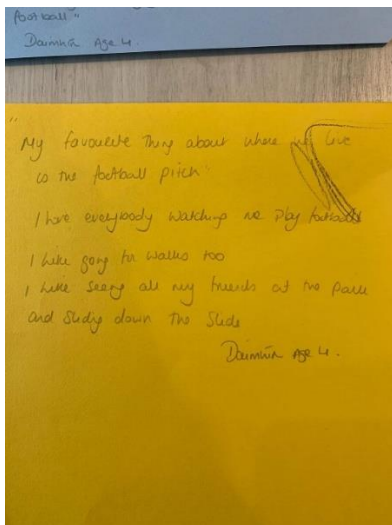 football"
Daimhín Age 4.
"
My favourite thing about where we live
is the football pitch"
I love everybody watching me play football
I like going for walks too
I like seeing all my friends at the park
and sliding down the slide
Daimhín Age 4.